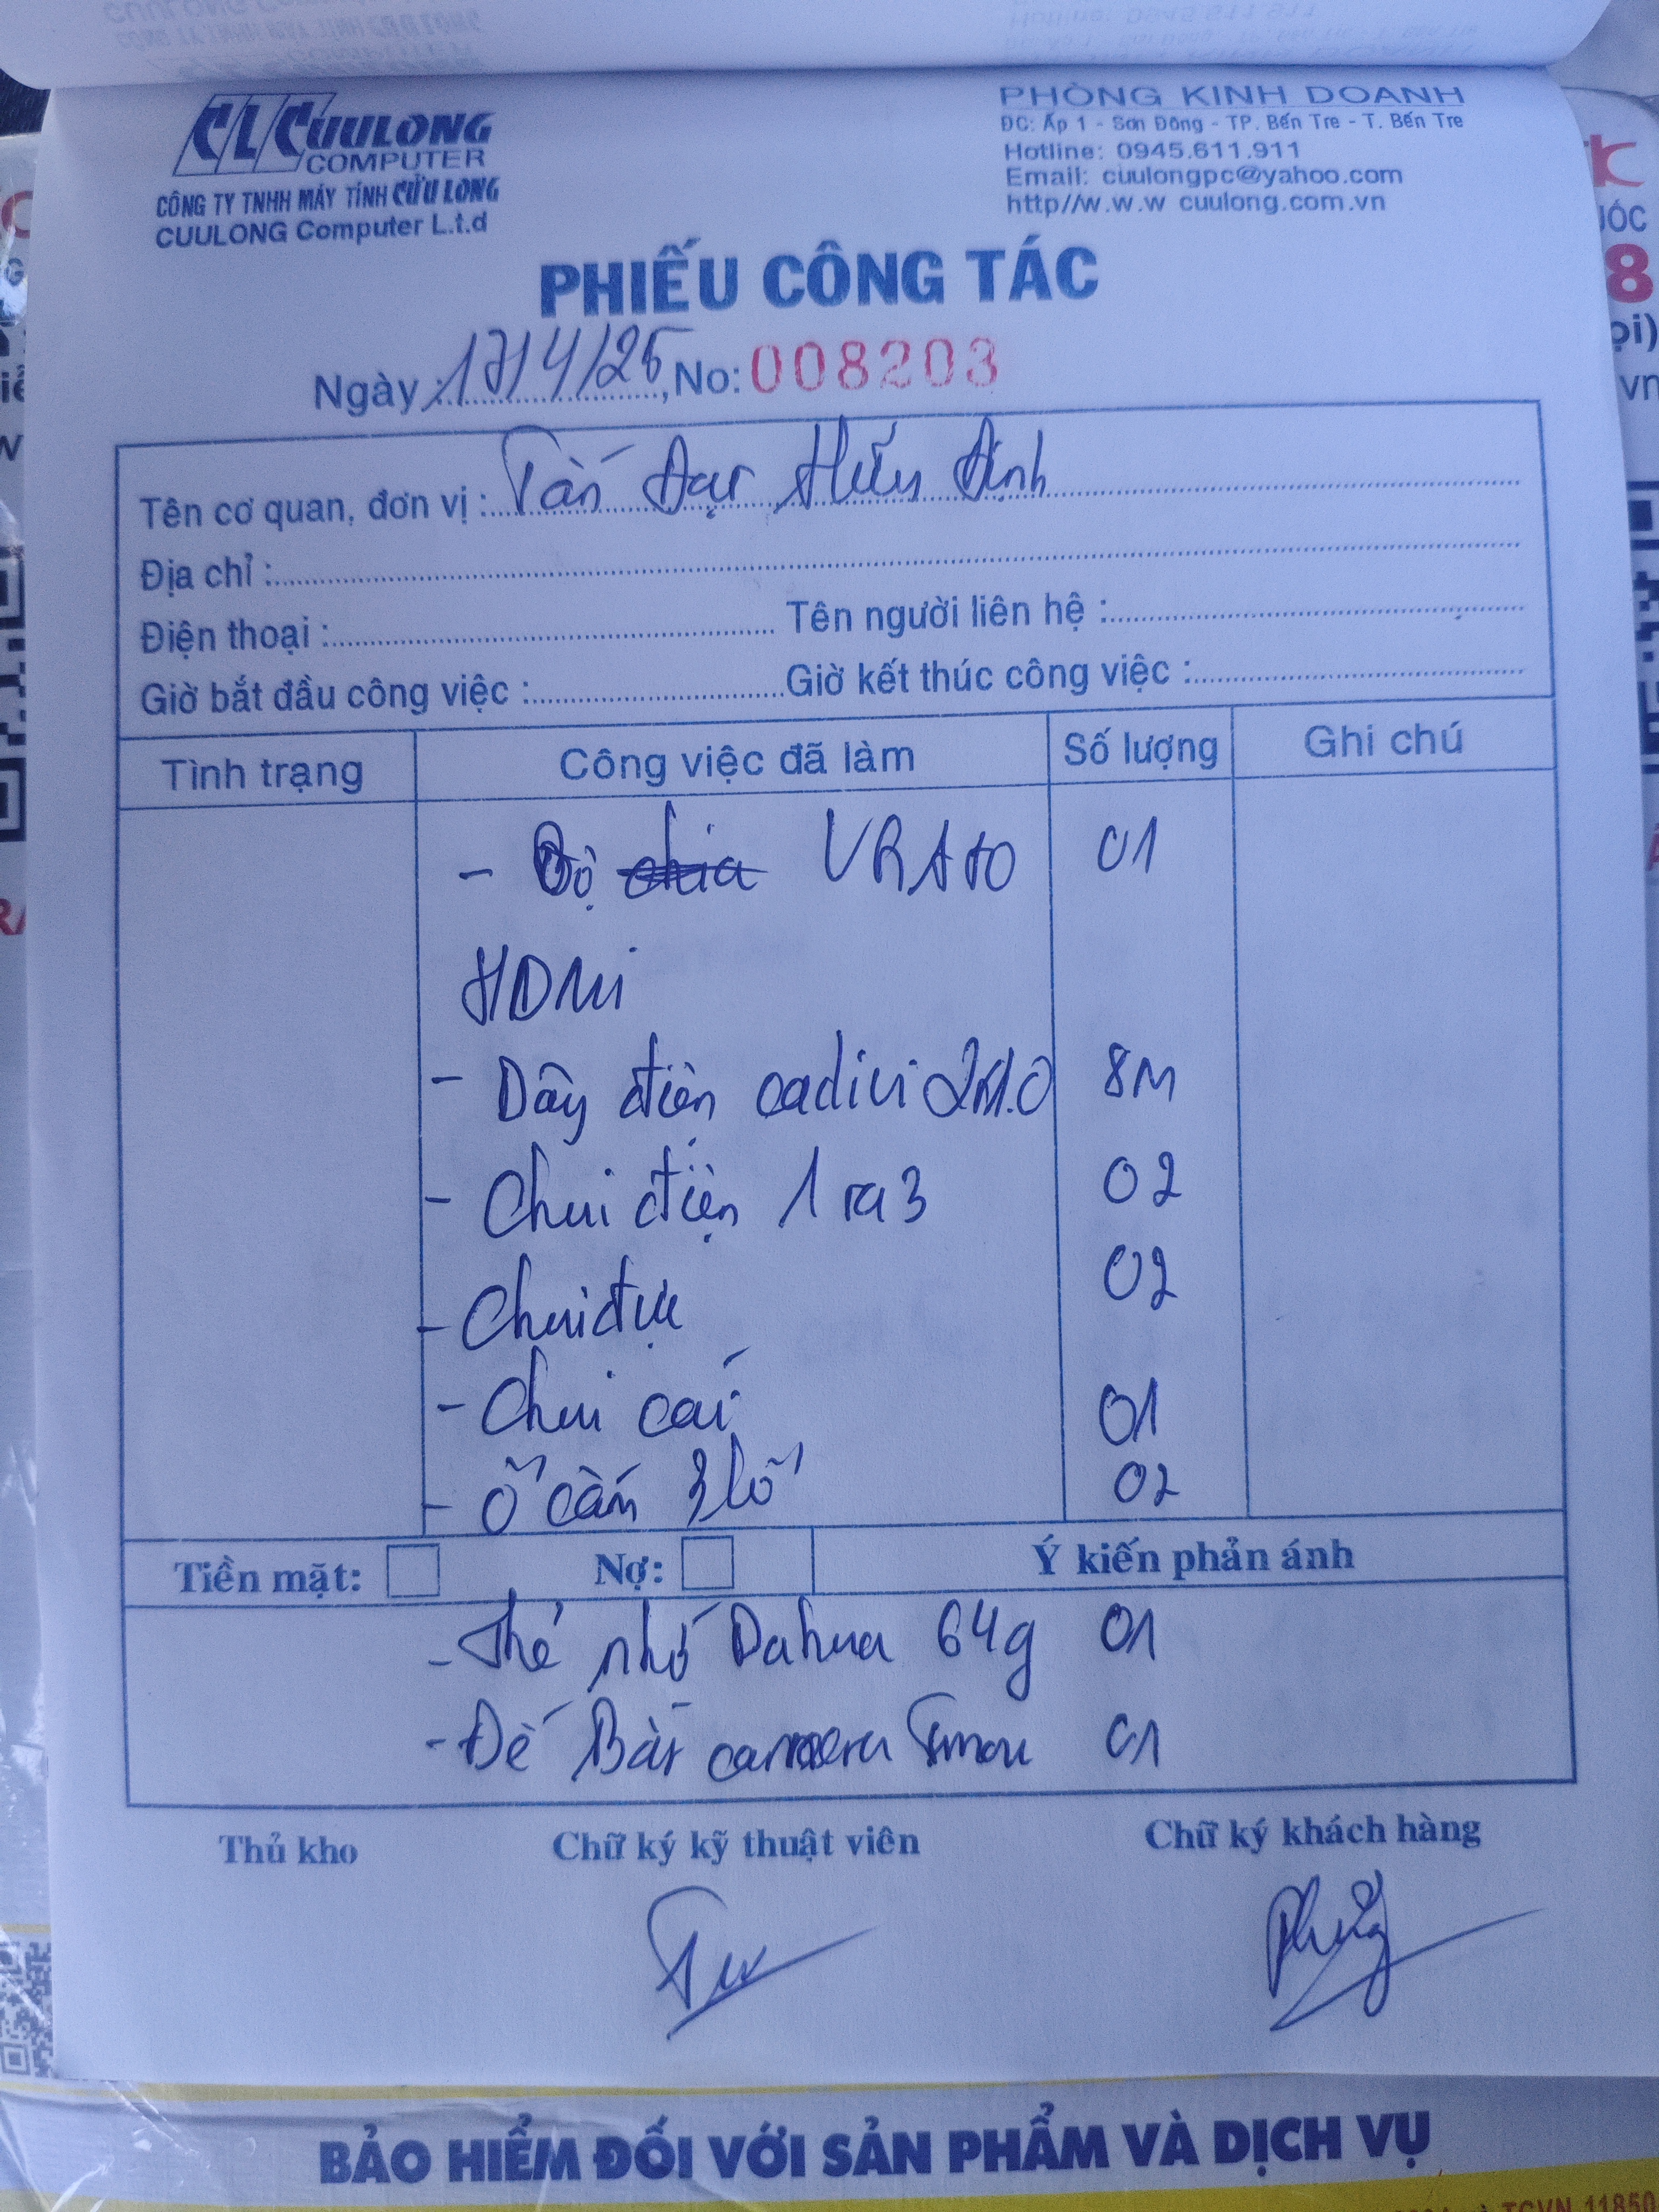 CLC CUULONG
COMPUTER
CÔNG TY TNHH MÁY TÍNH CỬU LONG
CUULONG Computer L.t.d
PHÒNG KINH DOANH
ĐC: Ấp 1 - Sơn Đông - TP. Bến Tre - T. Bến Tre
Hotline: 0945.611.911
Email: cuulongpc@yahoo.com
http//w.w.w cuulong.com.vn
PHIẾU CÔNG TÁC
Ngày : 17/4/25, No: 008203
Tên cơ quan, đơn vị : Tấn Đạt Hữu Định
Địa chỉ :
Điện thoại : Tên người liên hệ :
Giờ bắt đầu công việc : Giờ kết thúc công việc :
Tình trạng Công việc đã làm Số lượng Ghi chú
- Bộ chia 01
HDMi
- Dây điện cadivi 8M
- Chui điện 1 ra 3 02
- Chui đực 02
- Chui cái 01
- Ổ cấm 3 lỗ 02
Tiền mặt: Nợ: Ý kiến phản ánh
- Thẻ nhớ Dahua 64g 01
- Đế Bắt camera Imou 01
Thủ kho Chữ ký kỹ thuật viên Chữ ký khách hàng
BẢO HIỂM ĐỐI VỚI SẢN PHẨM VÀ DỊCH VỤ